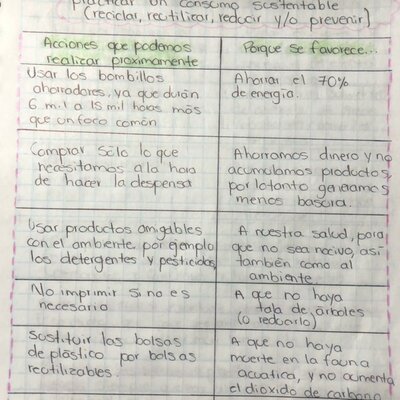 practicar un consumo sustentable
(reciclar, reutilizar, reducir y/o prevenir)
Acciones que podemos
realizar proximamente
Porque se favorece...
Usar los bombillos
ahorradores, ya que durán
6 mil a 15 mil horas más
que un foco común
Ahorrar el 70%
de energía.
Comprar sólo lo que
necesitamos a la hora
de hacer la despensa
Ahorramos dinero y no
acumulamos productos,
por lo tanto generamos
menos basura.
Usar productos amigables
con el ambiente, por ejemplo
los detergentes y pesticidas
A nuestra salud, para
que no sea nocivo, así
también como al
ambiente.
No imprimir si no es
necesario
A que no haya
tala de árboles
(o reducirlo)
Sustituir las bolsas
de plástico por bolsas
reutilizables.
A que no haya
muerte en la fauna
acuatica, y no aumenta
el dióxido de carbono